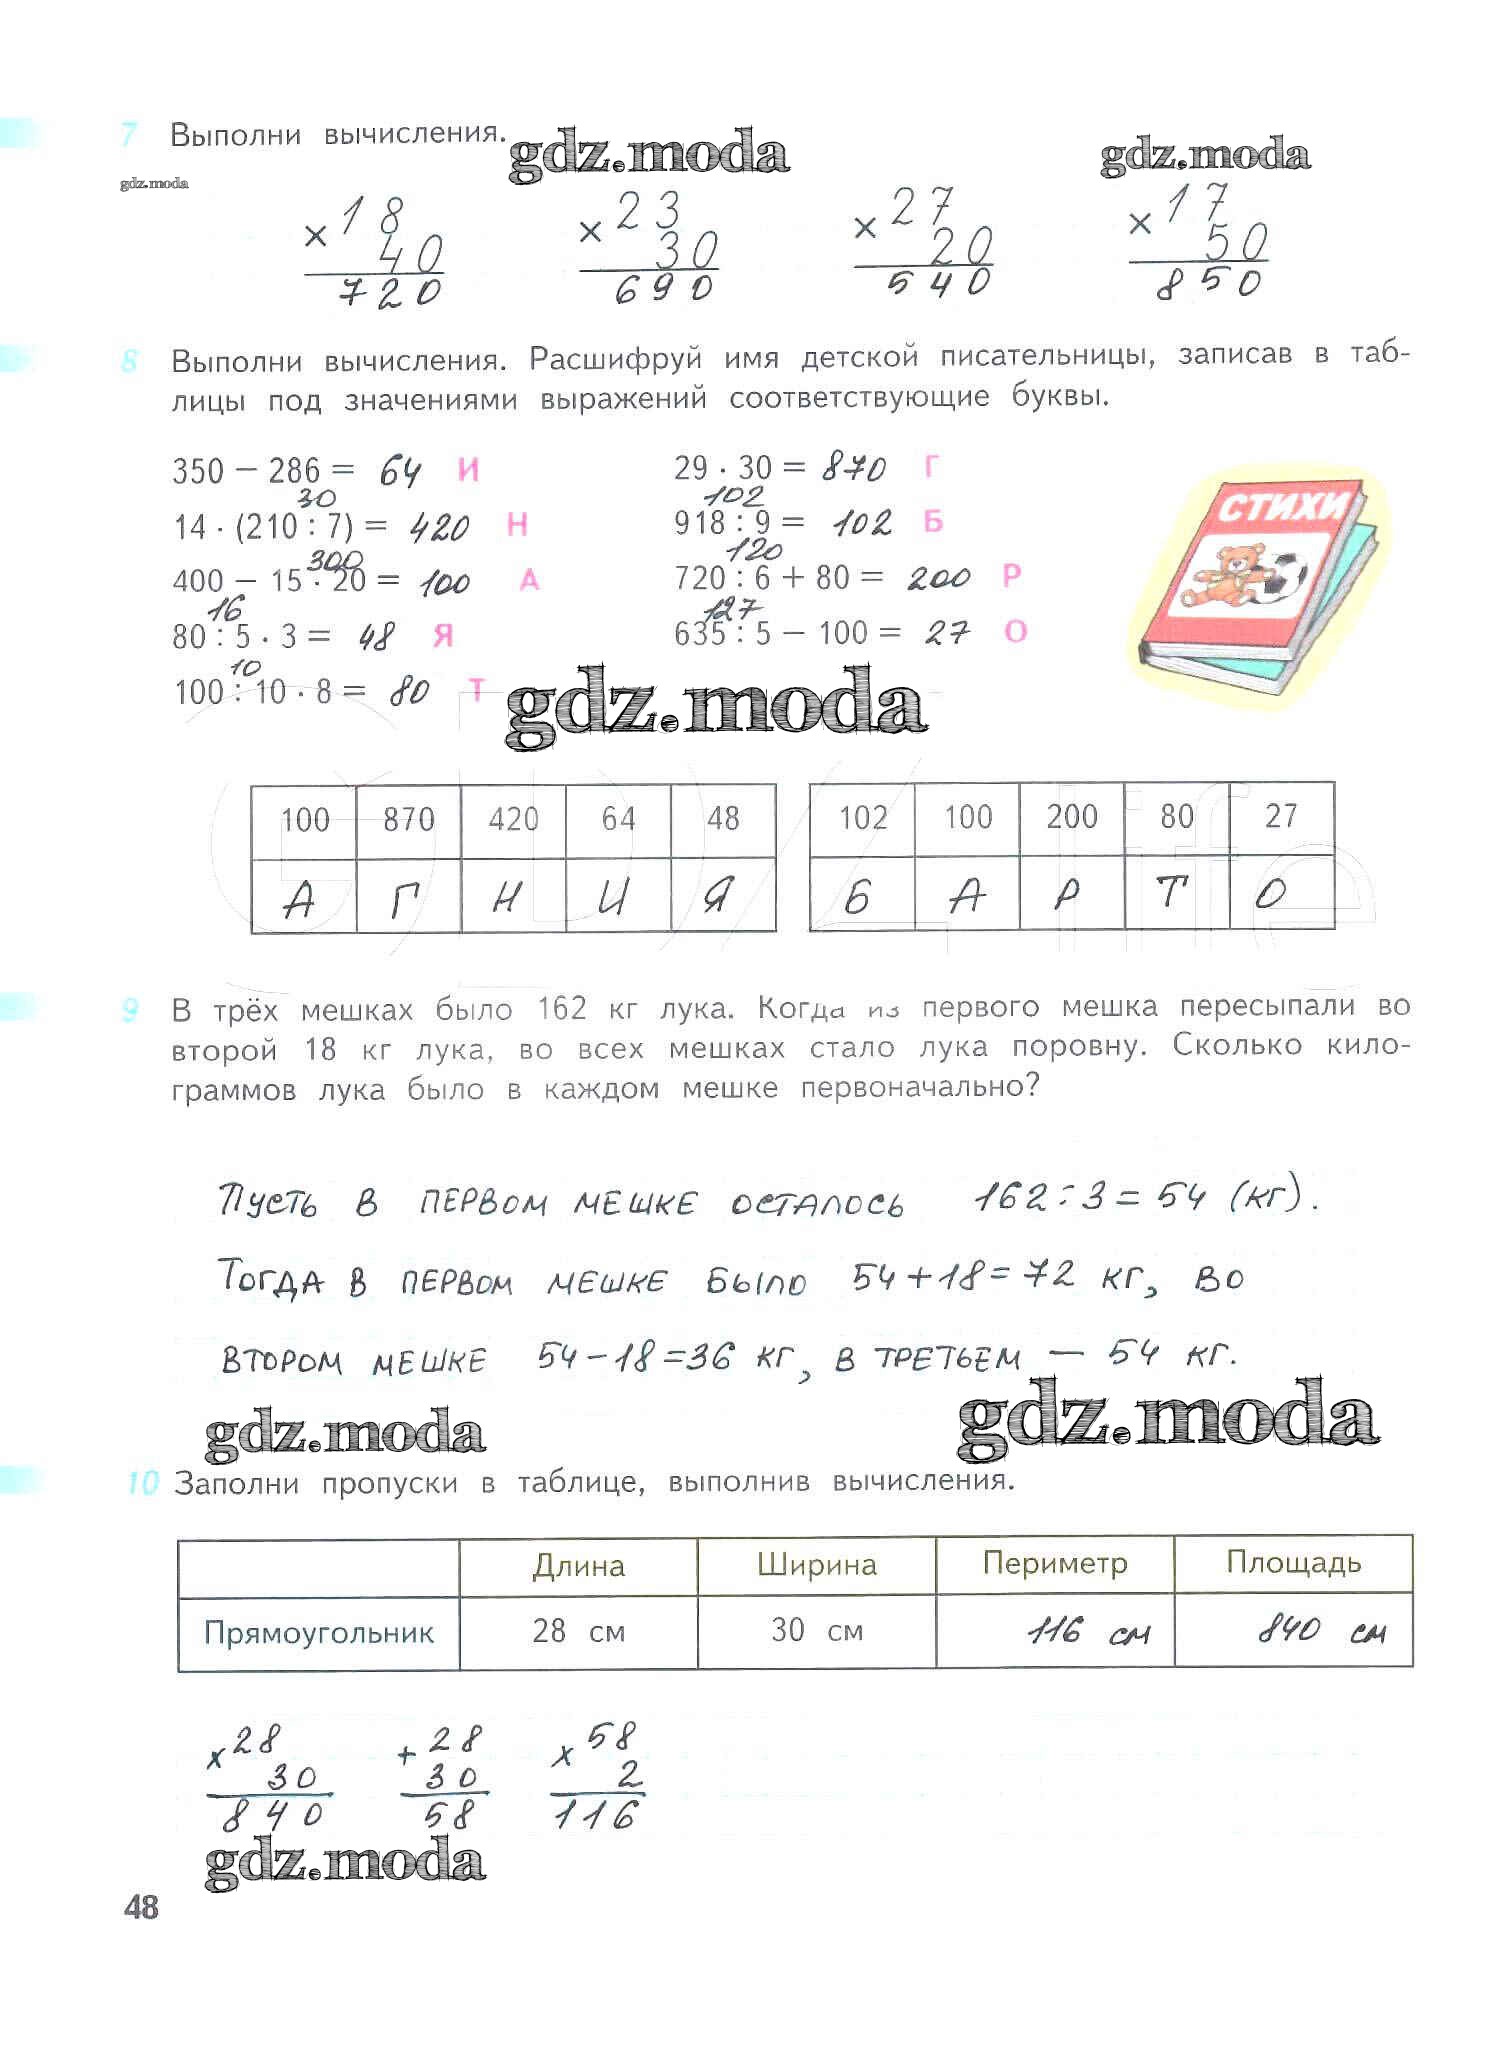 7 Выполни вычисления.
gdz.moda
gdz.moda
gdz.moda
× 18 × 23 × 27 × 17
40 30 20 50
720 690 540 850
8 Выполни вычисления. Расшифруй имя детской писательницы, записав в таб-
лицы под значениями выражений соответствующие буквы.
350 − 286 = 64 И
30
14 · (210 : 7) = 420 Н
300
400 − 15 · 20 = 100 А
16
80 : 5 · 3 = 48 Я
10
100 : 10 · 8 = 80 Т
29 · 30 = 870 Г
102
918 : 9 = 102 Б
120
720 : 6 + 80 = 200 Р
127
635 : 5 − 100 = 27 О
СТИХИ
gdz.moda
100 870 420 64 48
А Г Н И Я
102 100 200 80 27
Б А Р Т О
9 В трёх мешках было 162 кг лука. Когда из первого мешка пересыпали во
второй 18 кг лука, во всех мешках стало лука поровну. Сколько кило-
граммов лука было в каждом мешке первоначально?
Пусть в первом мешке осталось 162:3=54 (кг).
Тогда в первом мешке было 54+18=72 кг, во
втором мешке 54−18=36 кг, в третьем — 54 кг.
gdz.moda
gdz.moda
10 Заполни пропуски в таблице, выполнив вычисления.
Длина Ширина Периметр Площадь
Прямоугольник 28 см 30 см 116 см 840 см
× 28 + 28 × 58
30 30 2
840 58 116
gdz.moda
48